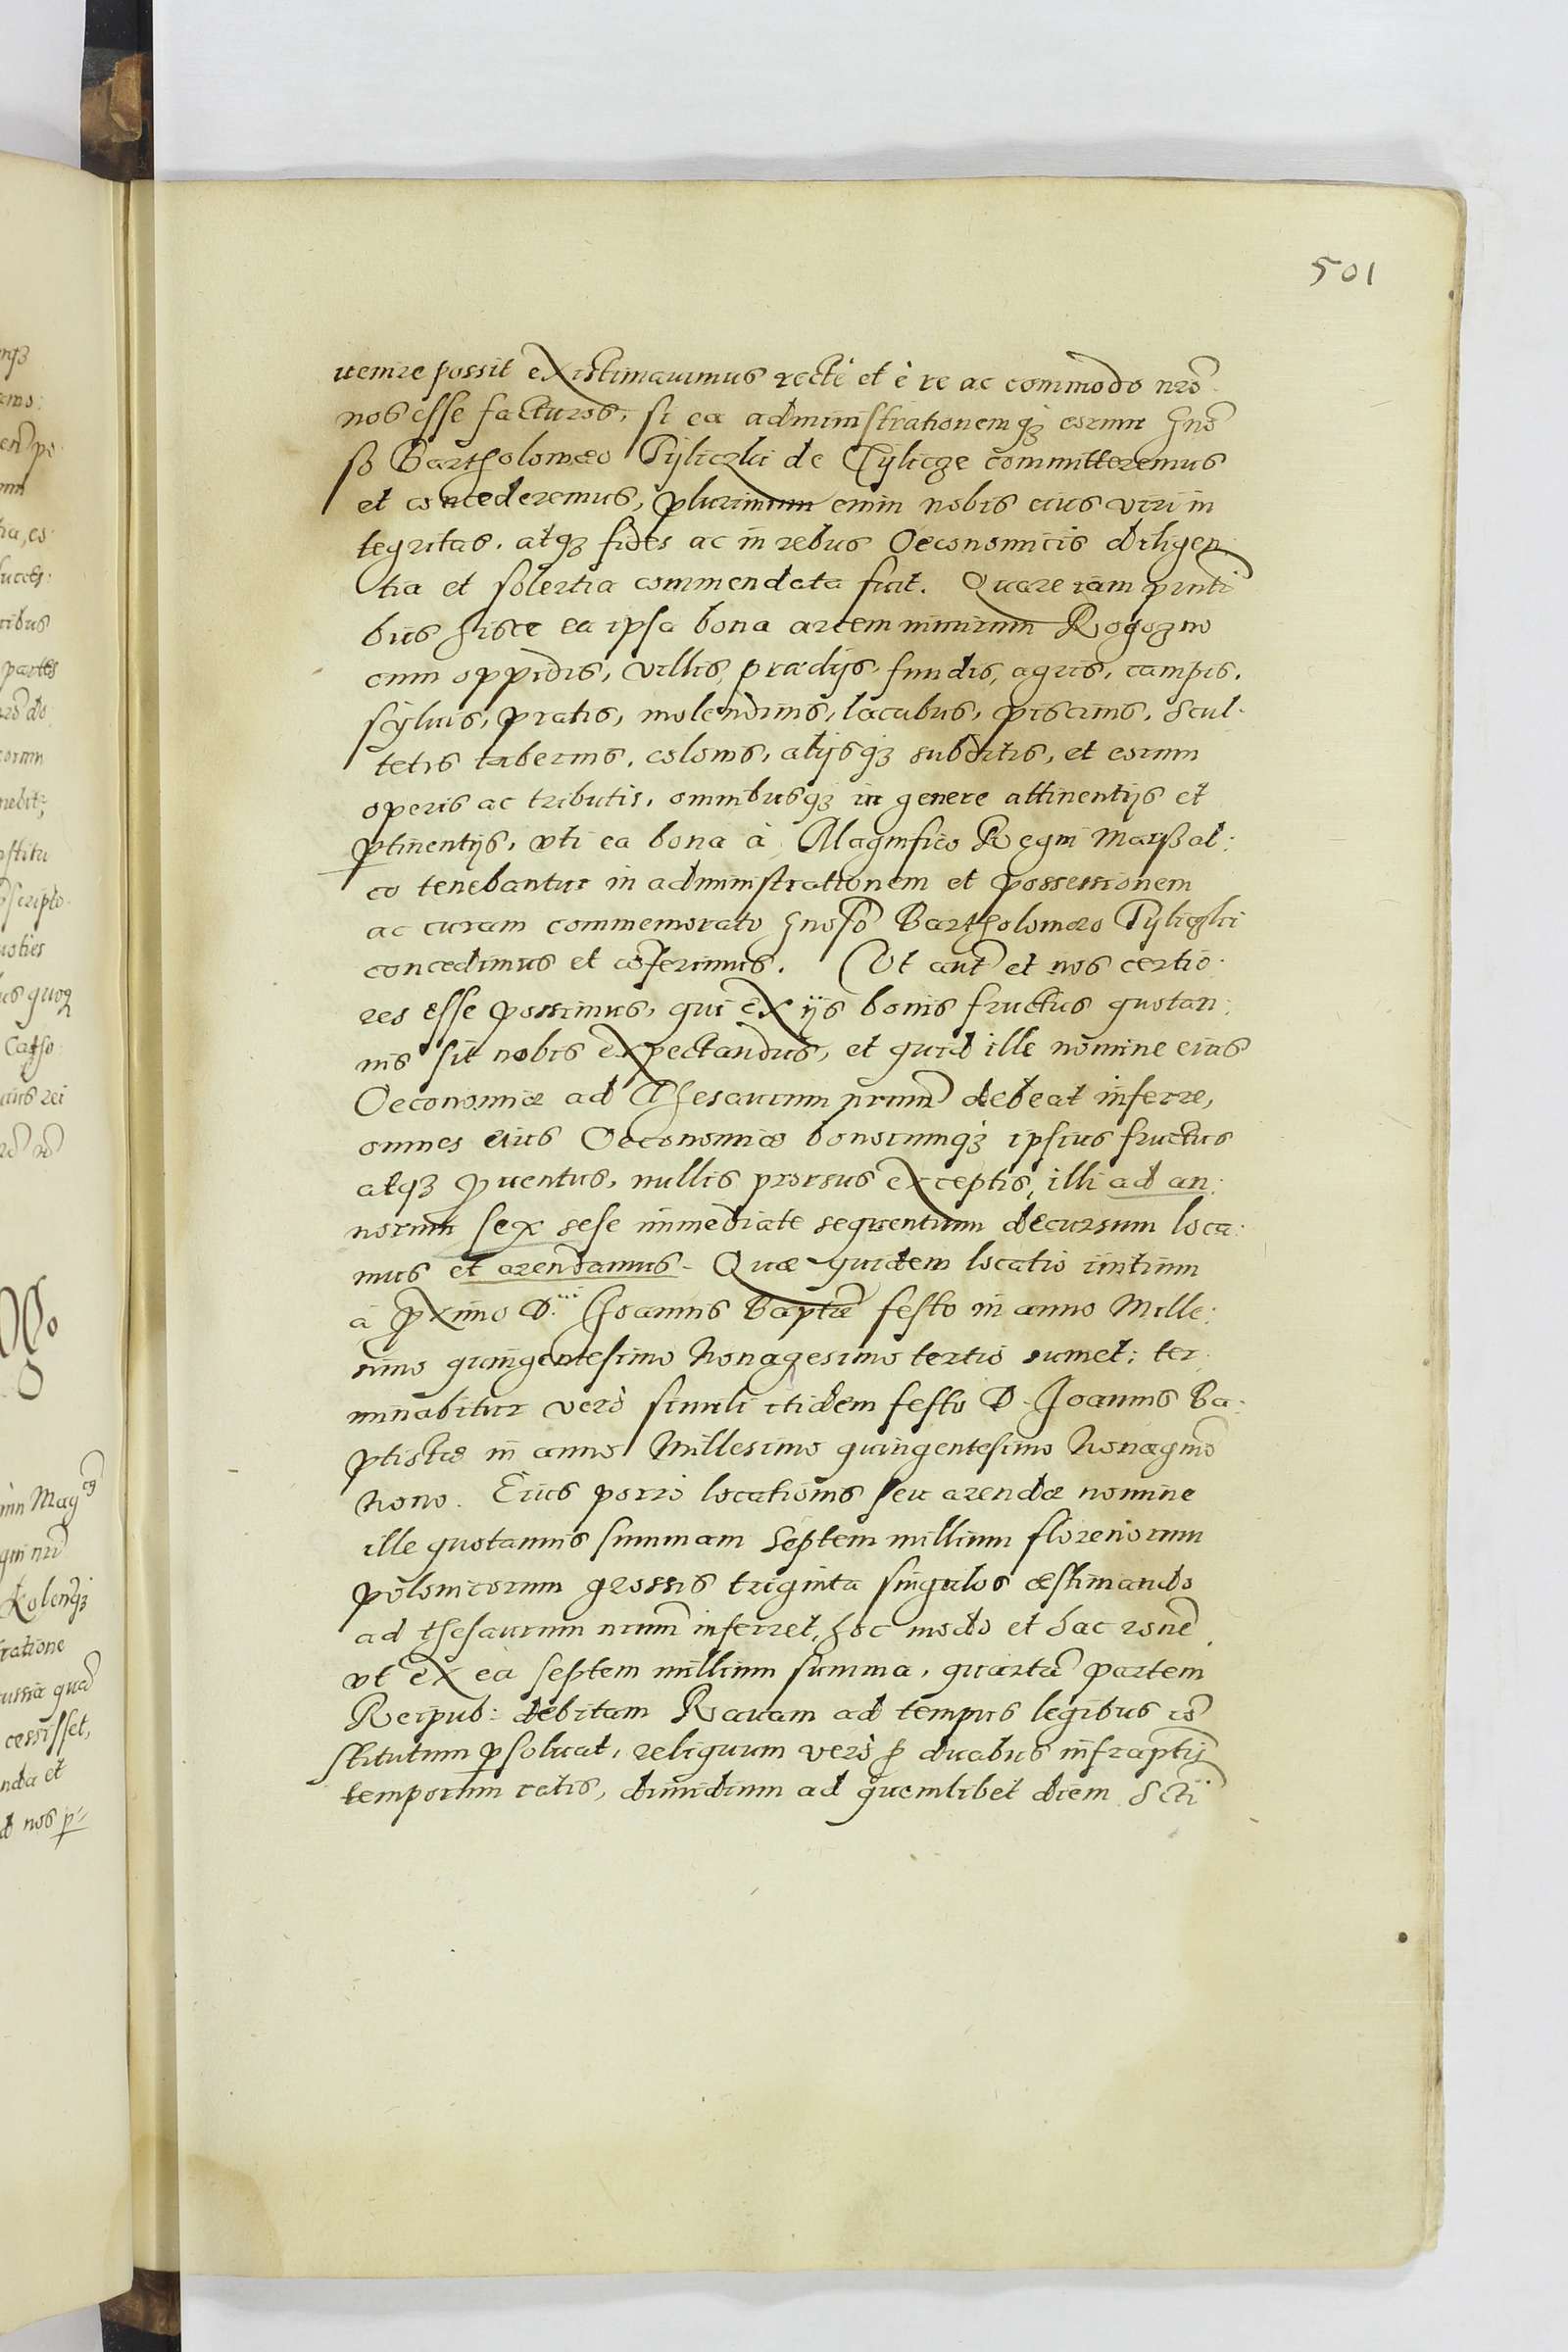 501
uenire possit existimauimus recté et è re ac commodo nrõ
nos esse facturos, si ea administrationemqȝ eorum Gnõ
so Bartholomæo Tyliczki de Tylicze committeremus
et concederemus, plurimum enim nobis eius viri in
tegritas, atqȝ fides ac in rebus Oeconomicis diligen
tia et solertia commendata fuit. Quare iam pñti
bus hisce ea ipsa bona arcem nimirum Rogozno
cum oppidis, villis, prædijs, fundis, agris, campis,
syluis, pratis, molendinis, lacubus, piscinis, Scul:
tetis tabernis, colonis, alijsqȝ subditis, et eorum
operis ac tributis, omnibusqȝ in genere attinentijs et
ptinentijs, vti ea bona à Magnifico Regni Marsal:
co tenebantur in administrationem et possessionem
ac curam commemorato Gnosõ Bartholomæo Tyliczki
concedimus et cõferimus. Vt aut̃ et nos certio:
res esse possimus, qui ex ijs bonis fructus quotan:
nis sit nobis expectandus, et quid ille nomine eius
Oeconomiæ ad Thesaurum nrum̃ debeat inferre,
omnes eius Oeconomiæ bonorumqȝ ipsius fructus
atqȝ puentus, nullis prorsus exceptis, illi ad an:
norum sex sese immediate sequentium decursum loca:
mus et arendamus. Quæ quidem locatio initium
à pximo D: Joannis Baptæ festo in anno Mille:
simo quingentesimo Nonagesimo tertio sumet; ter
minabitur verò simili itidem festo D. Joannis Ba:
ptistæ in anno Millesimo quingentesimo Nonagmõ
Nono. Eius porrò locationis seu arendæ nomine
ille quotannis summam Septem millium florenorum
polonicorum grossis triginta singulos æstimando
ad thesaurum nrum̃ inferret, hoc modo et hac ronẽ,
vt ex ea septem millium summa, quartã partem
Reipub: debitam Rauam ad tempus legibus cõ
stitutum psoluat, reliquum verò p duabus infraptis
temporum ratis, dimidium ad quemlibet diem Scti